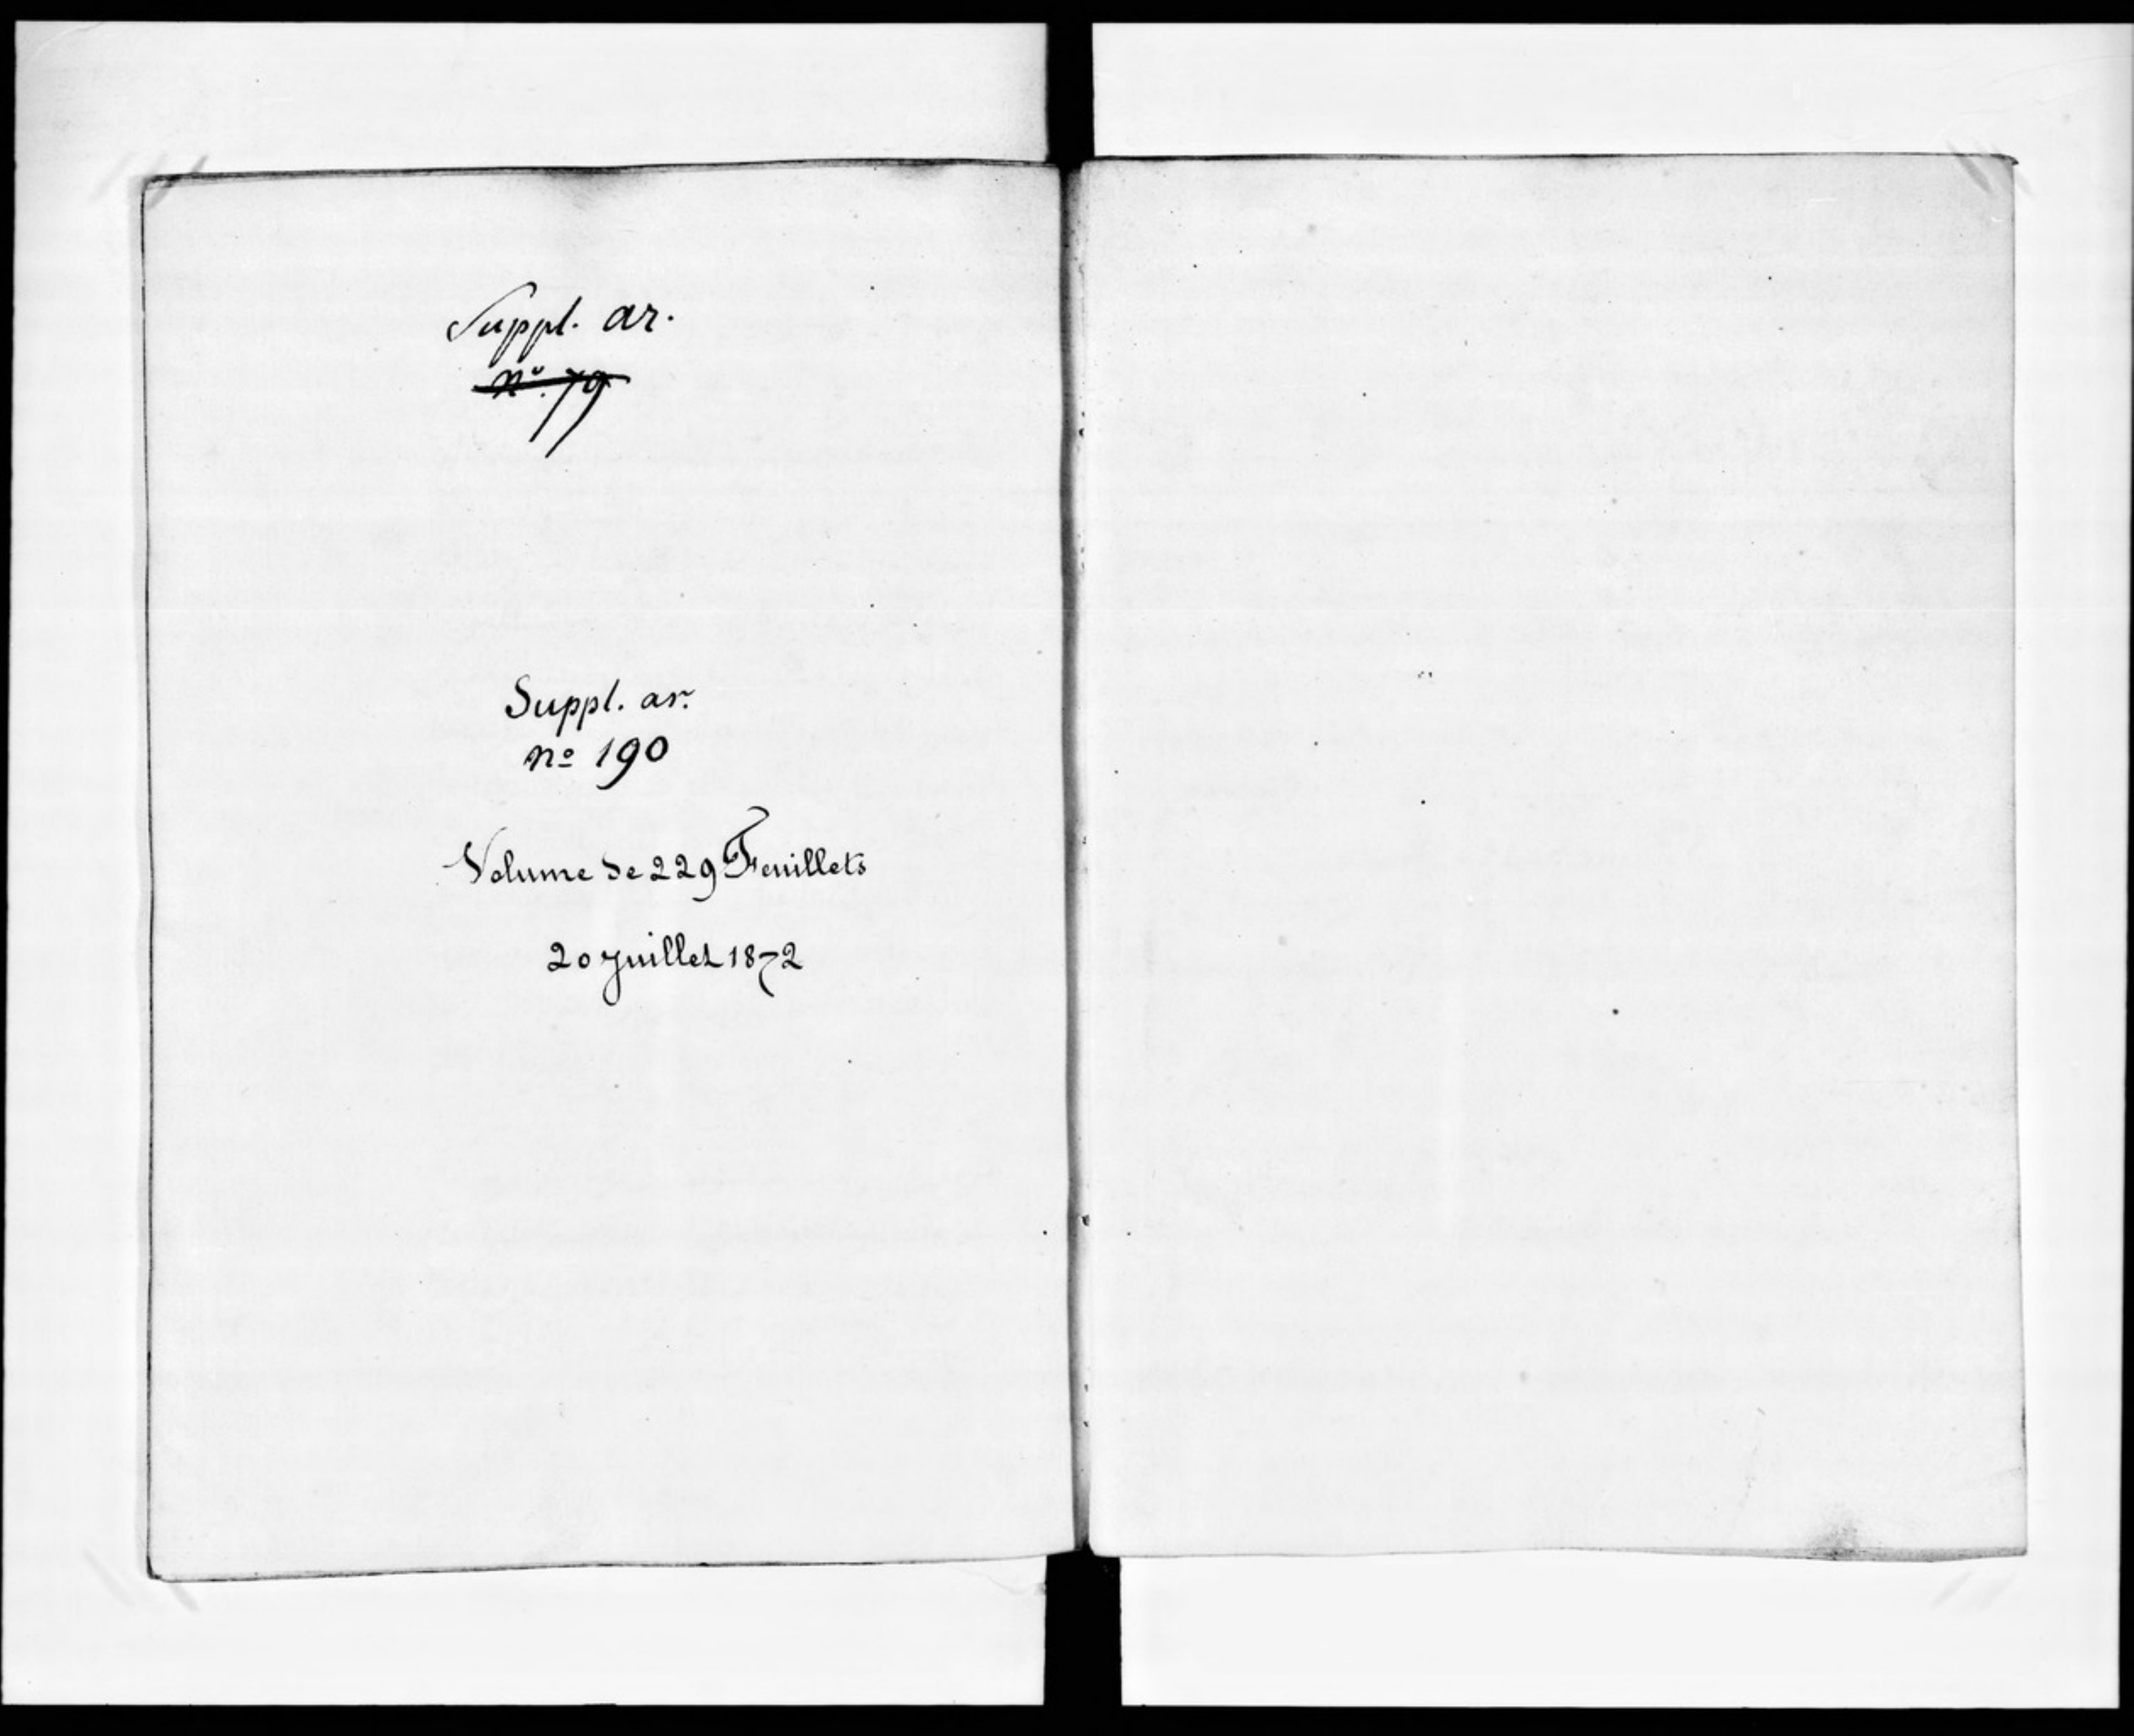 Suppl. ar.
nº. 79
Suppl. ar.
nº 190
Volume de 229 Feuillets
20 Juillet 1872